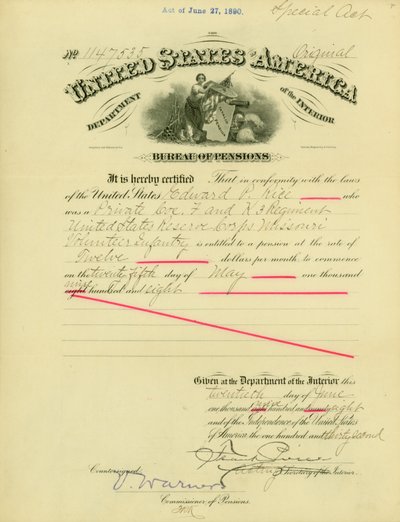 Act of June 27, 1890.
Special Act
No. 1147535
Original
UNITED STATES OF AMERICA
DEPARTMENT
of the INTERIOR
BUREAU OF PENSIONS
It is hereby certified That in conformity with the laws
of the United States Edward P. Rice who
was a Private Co's. F and K 3 Regiment
United States Reserve Corps Missouri
Volunteer Infantry is entitled to a pension at the rate of
Twelve dollars per month, to commence
on the twenty fifth day of May one thousand
nine
eight hundred and eight
Given at the Department of the Interior this
twentieth day of June
one thousand eight hundred and ninety eight
nine
and of the Independence of the United States
of America the one hundred and thirty second
Acting Secretary of the Interior.
Countersigned
V. Warner
Commissioner of Pensions.